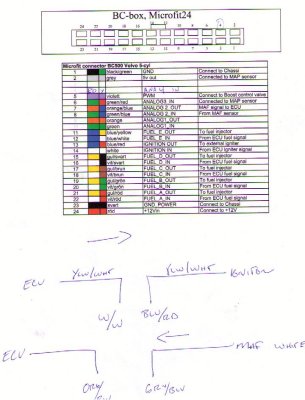 BC-box, Microfit24
24 23 22 21 20 19 18 17 16 15 14 13
Microfit connector BC500 Volvo 5-cyl
1 black/green GND Connect to Chassi
2 grey 5v out Connected to MAP sensor
5 violett PWM Connect to Boost control valve
6 green/red ANALOG3_IN Connected to MAP sensor
7 orange/blue ANALOG 2_OUT MAF signal to ECU
8 green/blue ANALOG 2_IN From MAF sensor
orange ANALOG1_OUT
green ANALOG1_IN
11 blue/yellow FUEL E_OUT To fuel injector
12 blue/white FUEL E_IN From ECU fuel signal
13 blue/red IGNITION OUT To external igniter
14 white IGNITION_IN From ECU igniter signal
15 gul/svart FUEL D_OUT To fuel injector
16 vit/svart FUEL D_IN From ECU fuel signal
17 gul/brun FUEL C_OUT To fuel injector
18 vit/brun FUEL C_IN From ECU fuel signal
19 gul/grön FUEL B_OUT To fuel injector
20 vit/grön FUEL B_IN From ECU fuel signal
21 gul/röd FUEL A_OUT To fuel injector
22 vit/röd FUEL A_IN From ECU fuel signal
23 svart GND POWER Connect to Chassi
24 röd +12Vin Connect to +12V
ECU YLW/WHT YLW/WHT IGNITOR
W/W BLU/RD
ECU MAF WHITE
GRY/BLU